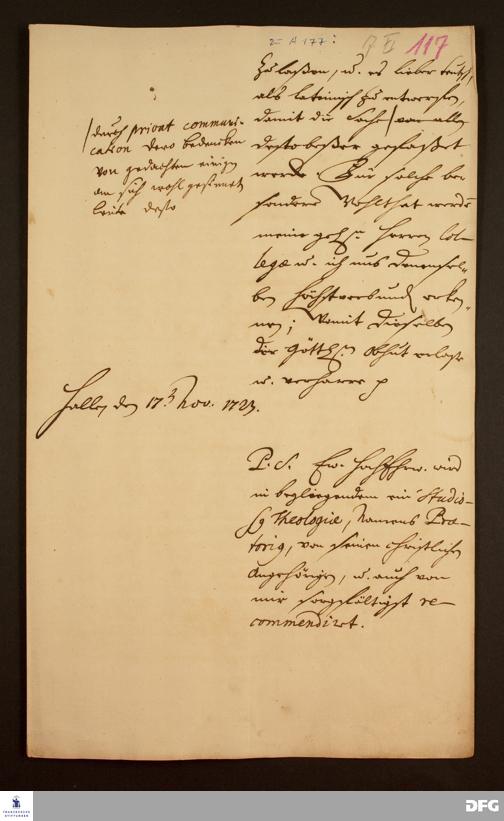 2 A 177:
117
zu laßen, u. es lieber teutsch,
als lateinisch zu entwerffen,
damit die Sache / von allen
desto beßer gefaßet
werde. Für solche be-
sondere Wohlthat werde
meine geh. Herren Col-
legæ u. ich uns denensel-
ben höchstverbund. erken-
nen; womit dieselben
der Göttl. obhut erlaße
u. verharre p
/ durch privat communi-
cation dero bedencken
von gedachten einigen
an sich wohl gesinnete
leute desto
Halle, den 17. Nov. 1723.
P. S. Ew. HochEhrw. wird
in beyliegendem ein Studio-
sus Theologiæ, Namens Præ-
torius, von seinen christlichen
Angehörigen, u. auch von
mir sorgfältigst re-
commendirt.
FRANCKESCHE
STIFTUNGEN
DFG